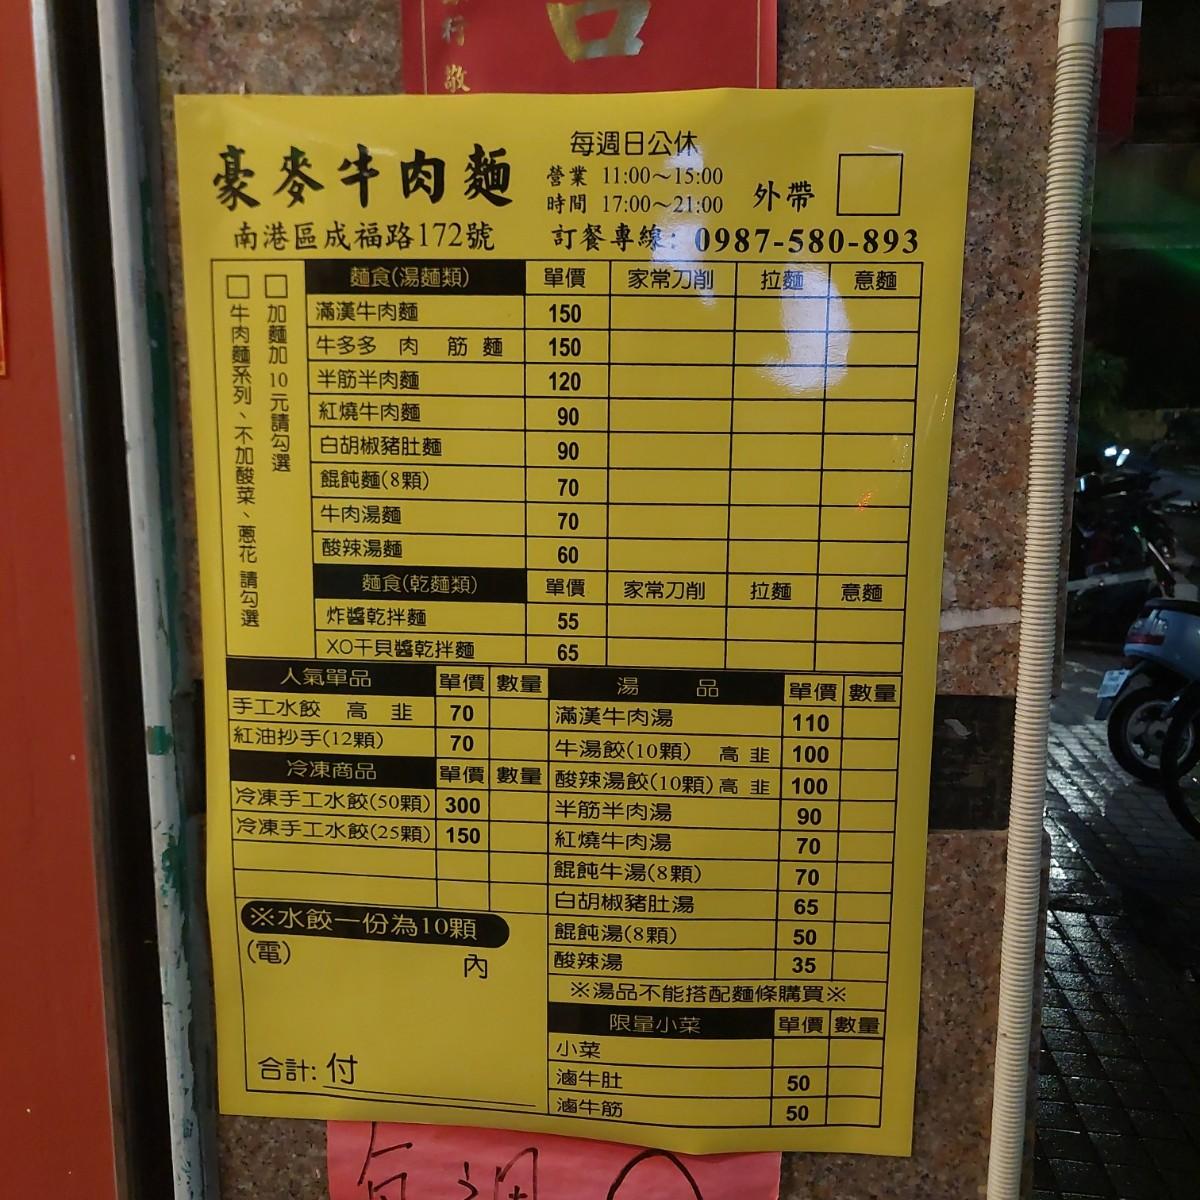 行敬
豪麥牛肉麵
每週日公休
營業 11:00～15:00
時間 17:00～21:00
外帶
南港區成福路172號
訂餐專線: 0987-580-893
加麵加10元請勾選
牛肉麵系列、不加酸菜、蔥花 請勾選
麵食(湯麵類) 單價 家常刀削 拉麵 意麵
滿漢牛肉麵 150
牛多多 肉 筋 麵 150
半筋半肉麵 120
紅燒牛肉麵 90
白胡椒豬肚麵 90
餛飩麵(8顆) 70
牛肉湯麵 70
酸辣湯麵 60
麵食(乾麵類) 單價 家常刀削 拉麵 意麵
炸醬乾拌麵 55
XO干貝醬乾拌麵 65
人氣單品 單價 數量
手工水餃 高 韭 70
紅油抄手(12顆) 70
冷凍商品 單價 數量
冷凍手工水餃(50顆) 300
冷凍手工水餃(25顆) 150
※水餃一份為10顆
(電) 內
合計: 付
湯 品 單價 數量
滿漢牛肉湯 110
牛湯餃(10顆) 高 韭 100
酸辣湯餃(10顆) 高 韭 100
半筋半肉湯 90
紅燒牛肉湯 70
餛飩牛湯(8顆) 70
白胡椒豬肚湯 65
餛飩湯(8顆) 50
酸辣湯 35
※湯品不能搭配麵條購買※
限量小菜 單價 數量
小菜
滷牛肚 50
滷牛筋 50
每週